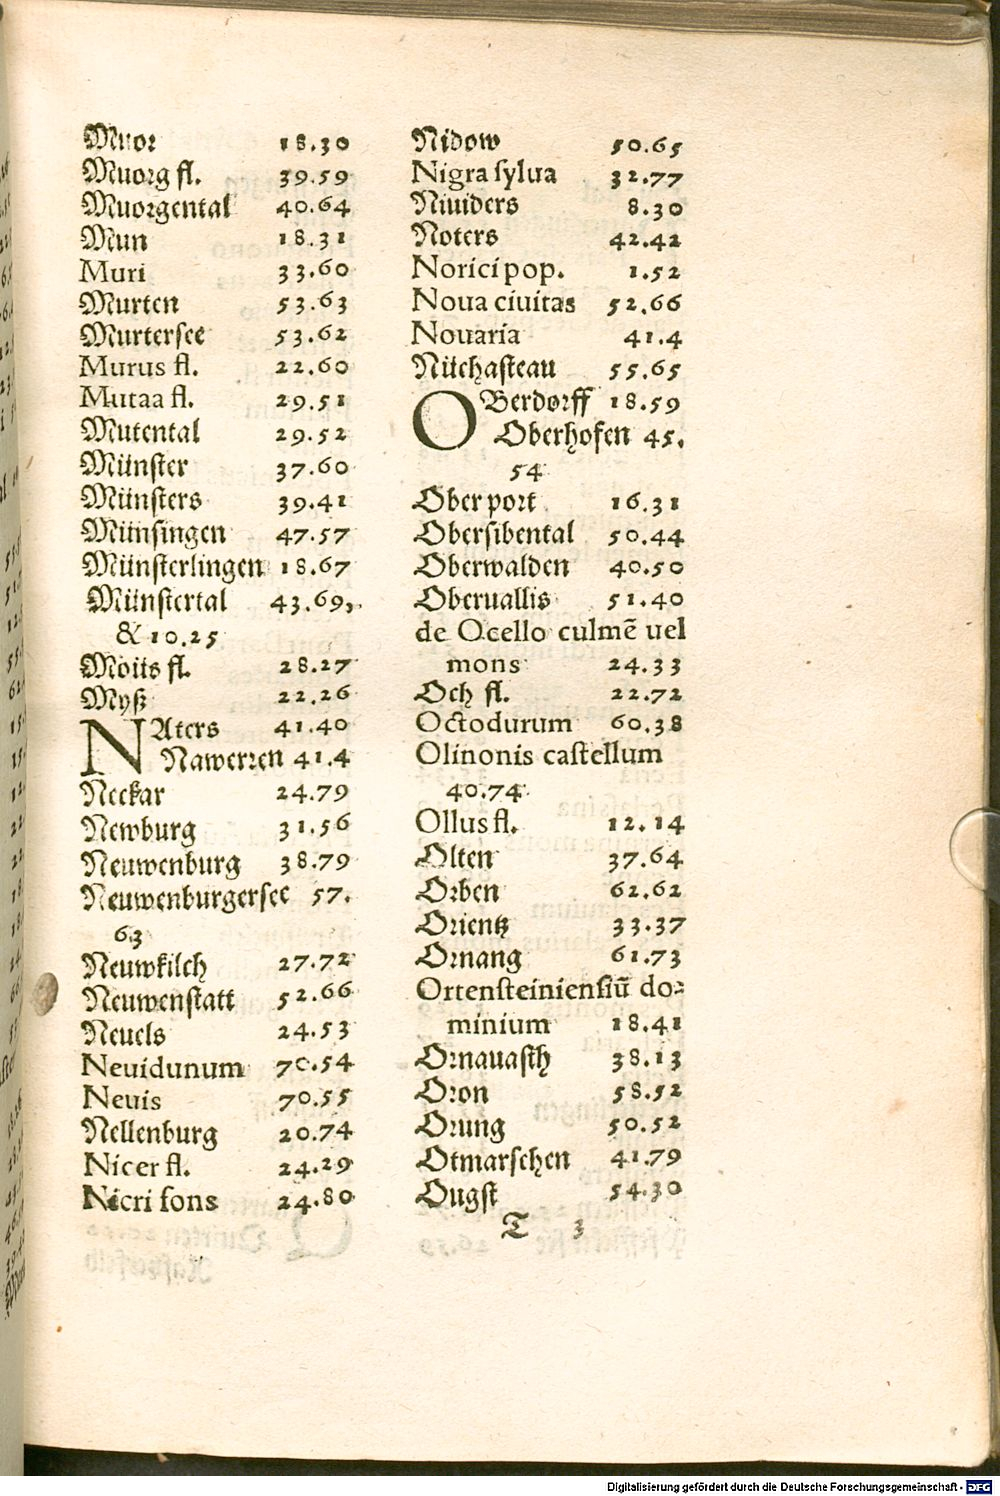 Muor 18.30
Muorg fl. 39.59
Muorgental 40.64
Mun 18.31
Muri 33.60
Murten 53.63
Murtersee 53.62
Murus fl. 22.60
Mutaa fl. 29.51
Mutental 29.52
Münster 37.60
Münsters 39.41
Münsingen 47.57
Münsterlingen 18.67
Münstertal 43.69,
& 10.25
Moiis fl. 28.27
Myß 22.26
NAters 41.40
Nawerren 41.4
Neckar 24.79
Newburg 31.56
Neuwenburg 38.79
Neuwenburgersee 57.
63
Neuwkilch 27.72
Neuwenstatt 52.66
Neuels 24.53
Neuidunum 70.54
Neuis 70.55
Nellenburg 20.74
Nicer fl. 24.29
Nicri fons 24.80
Nidow 50.65
Nigra sylua 32.77
Niuiders 8.30
Noters 42.42
Norici pop. 1.52
Noua ciuitas 52.66
Nouaria 41.4
Nüchasteau 55.65
OBerdorff 18.59
Oberhofen 45.
54
Ober port 16.31
Obersibental 50.44
Oberwalden 40.50
Oberuallis 51.40
de Ocello culmē uel
mons 24.33
Och fl. 22.72
Octodurum 60.38
Olinonis castellum
40.74
Ollus fl. 12.14
Olten 37.64
Orben 62.62
Orientz 33.37
Ornang 61.73
Ortensteiniensiū do-
minium 18.41
Ornauasch 38.13
Oron 58.52
Orung 50.52
Otmarschen 41.79
Ougst 54.30
T 3
Digitalisierung gefördert durch die Deutsche Forschungsgemeinschaft - DFG